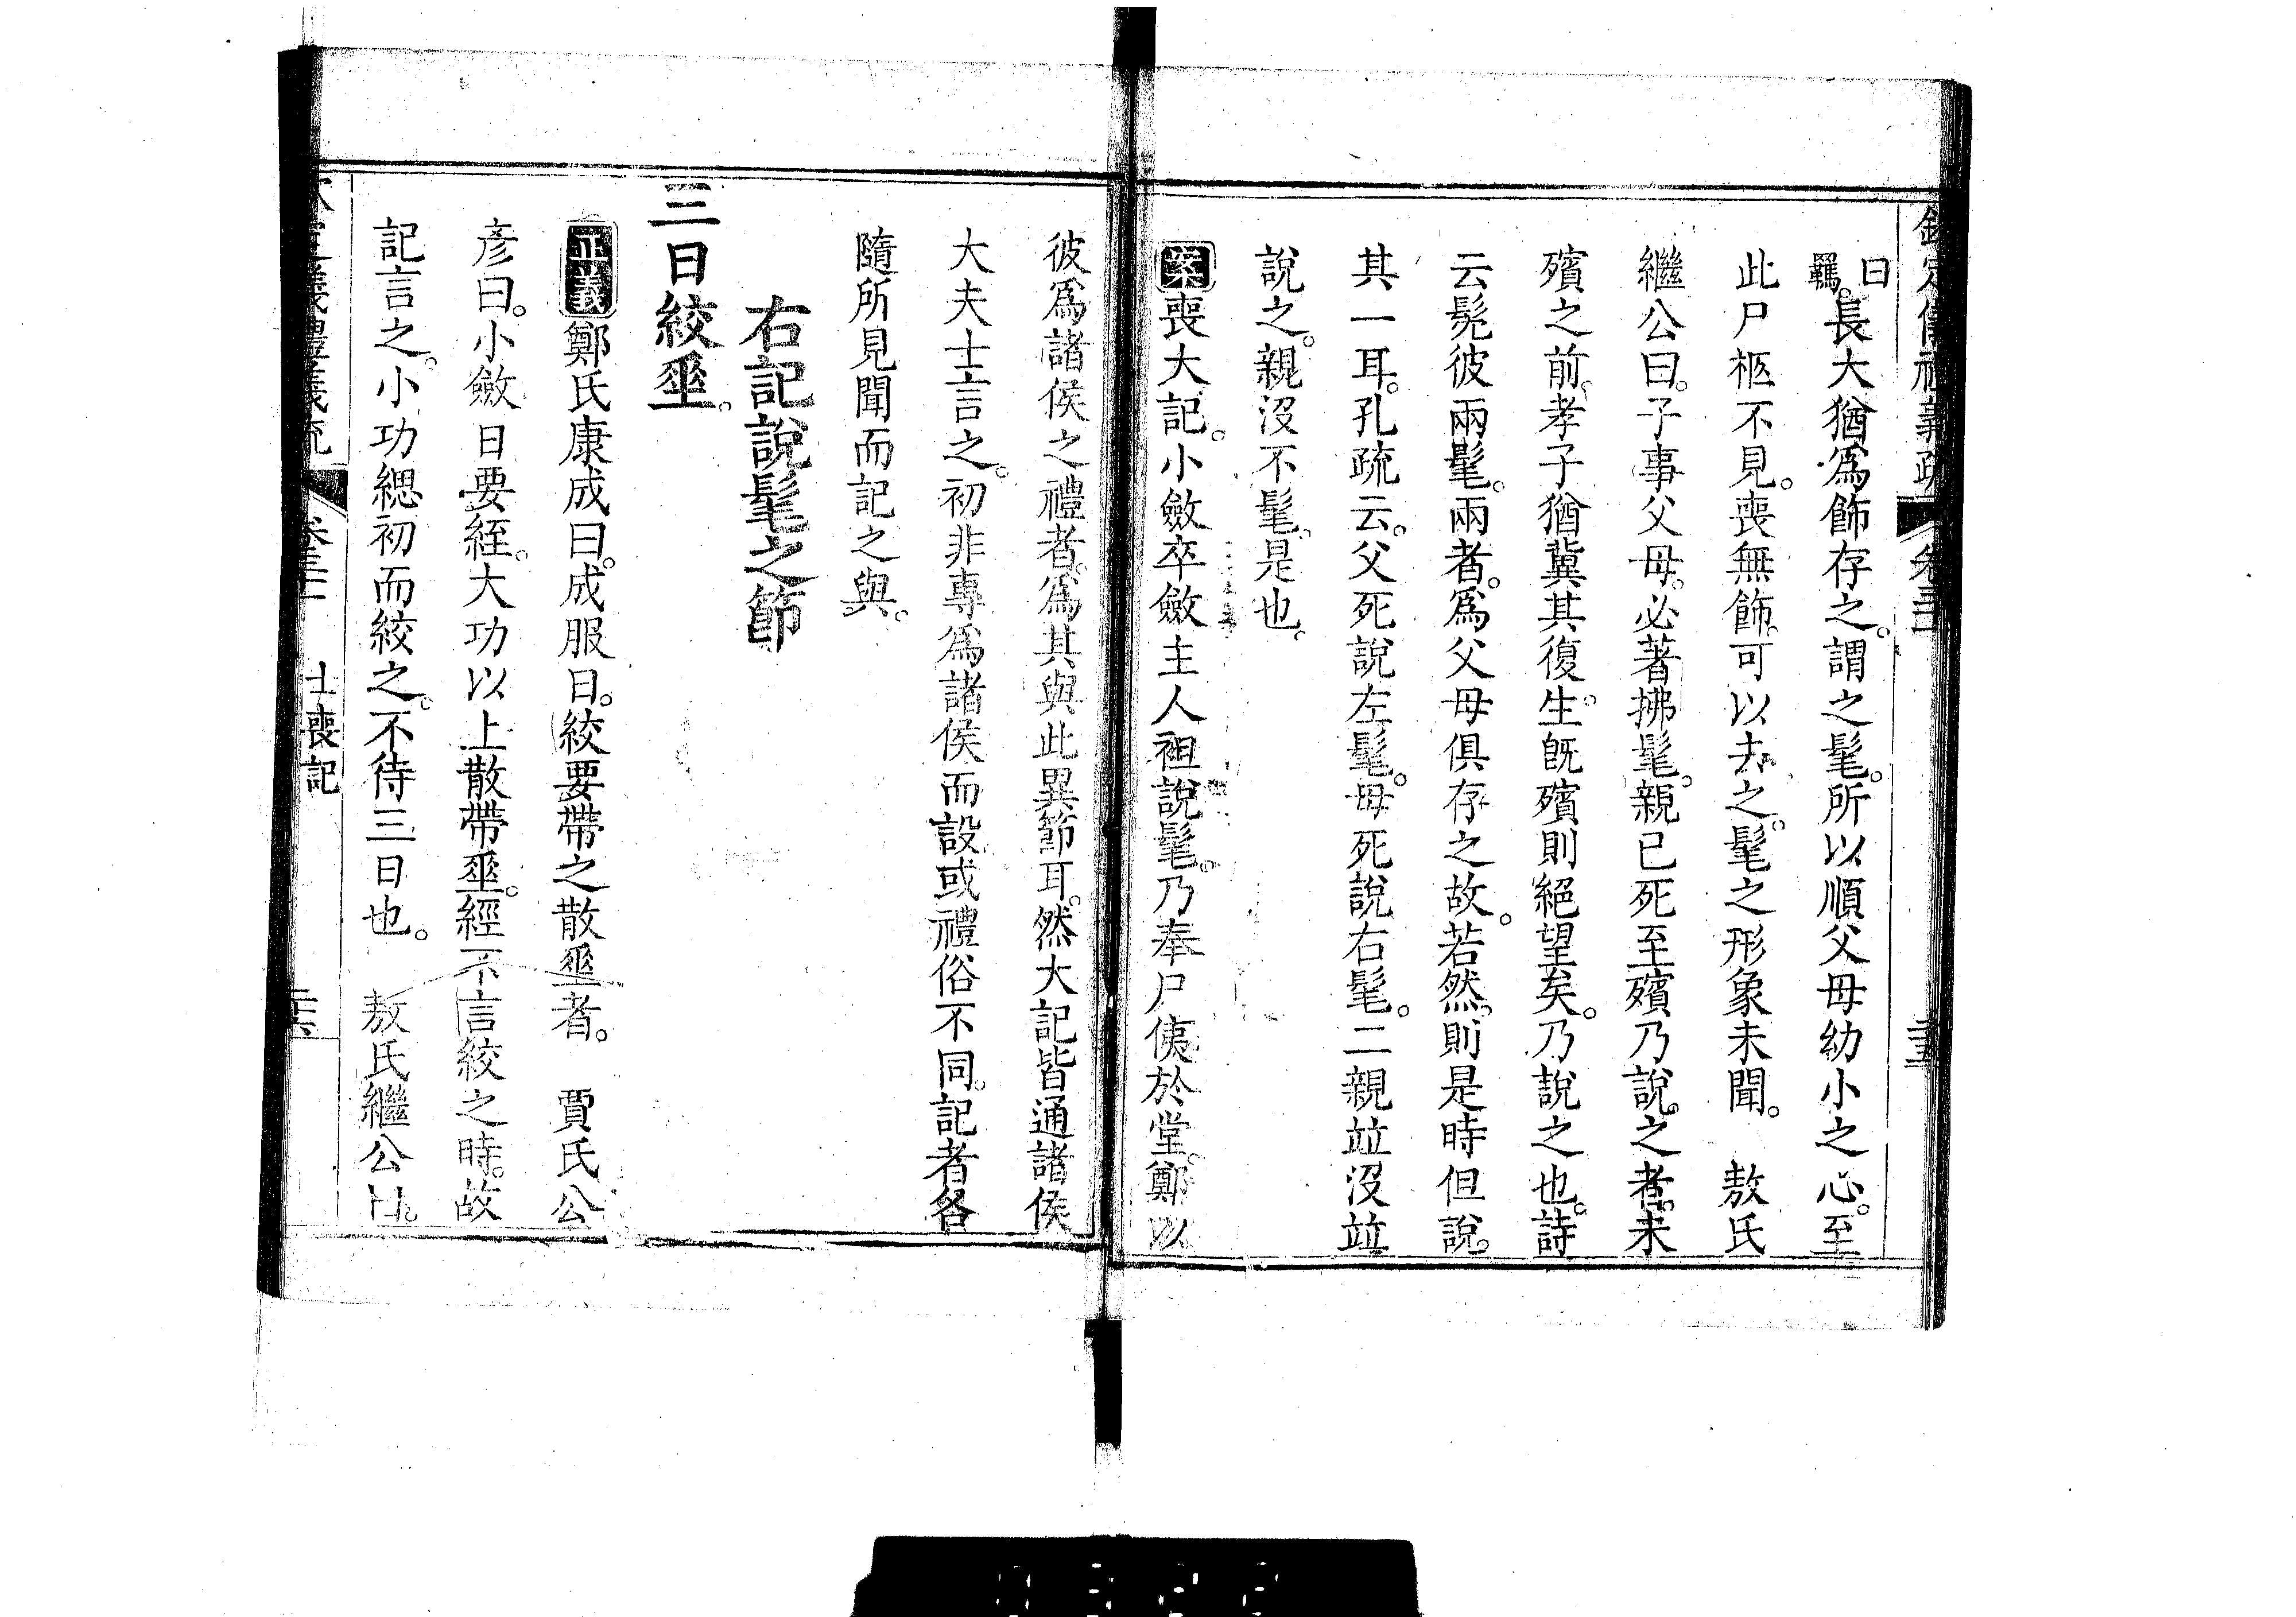 欽定儀禮義疏 卷三十一 三五
曰羈。長大猶爲飾存之。謂之髦。所以順父母幼小之心。至
此尸柩不見。喪無飾。可以去之。髦之形象未聞。 敖氏
繼公曰。子事父母。必著拂髦。親已死至殯乃說之者。未
殯之前。孝子猶冀其復生。旣殯則絕望矣。乃說之也。詩
云髧彼兩髦。兩者。爲父母俱存之故。若然。則是時但說
其一耳。孔疏云。父死說左髦。母死說右髦。二親竝沒竝
說之。親沒不髦。是也。
案喪大記。小斂卒斂主人袒說髦。乃奉尸侇於堂。鄭以
彼爲諸侯之禮者。爲其與此異節耳。然大記皆通諸侯
大夫士言之。初非專爲諸侯而設或禮俗不同。記者各
隨所見聞而記之與。
右記說髦之節
三日絞垂。
正義鄭氏康成曰。成服日。絞要帶之散垂者。 賈氏公
彥曰。小斂日要絰。大功以上散帶垂。經不言絞之時。故
記言之。小功緦初而絞之。不待三日也。 敖氏繼公曰。
欽定儀禮義疏 卷三十一 士喪記 三六